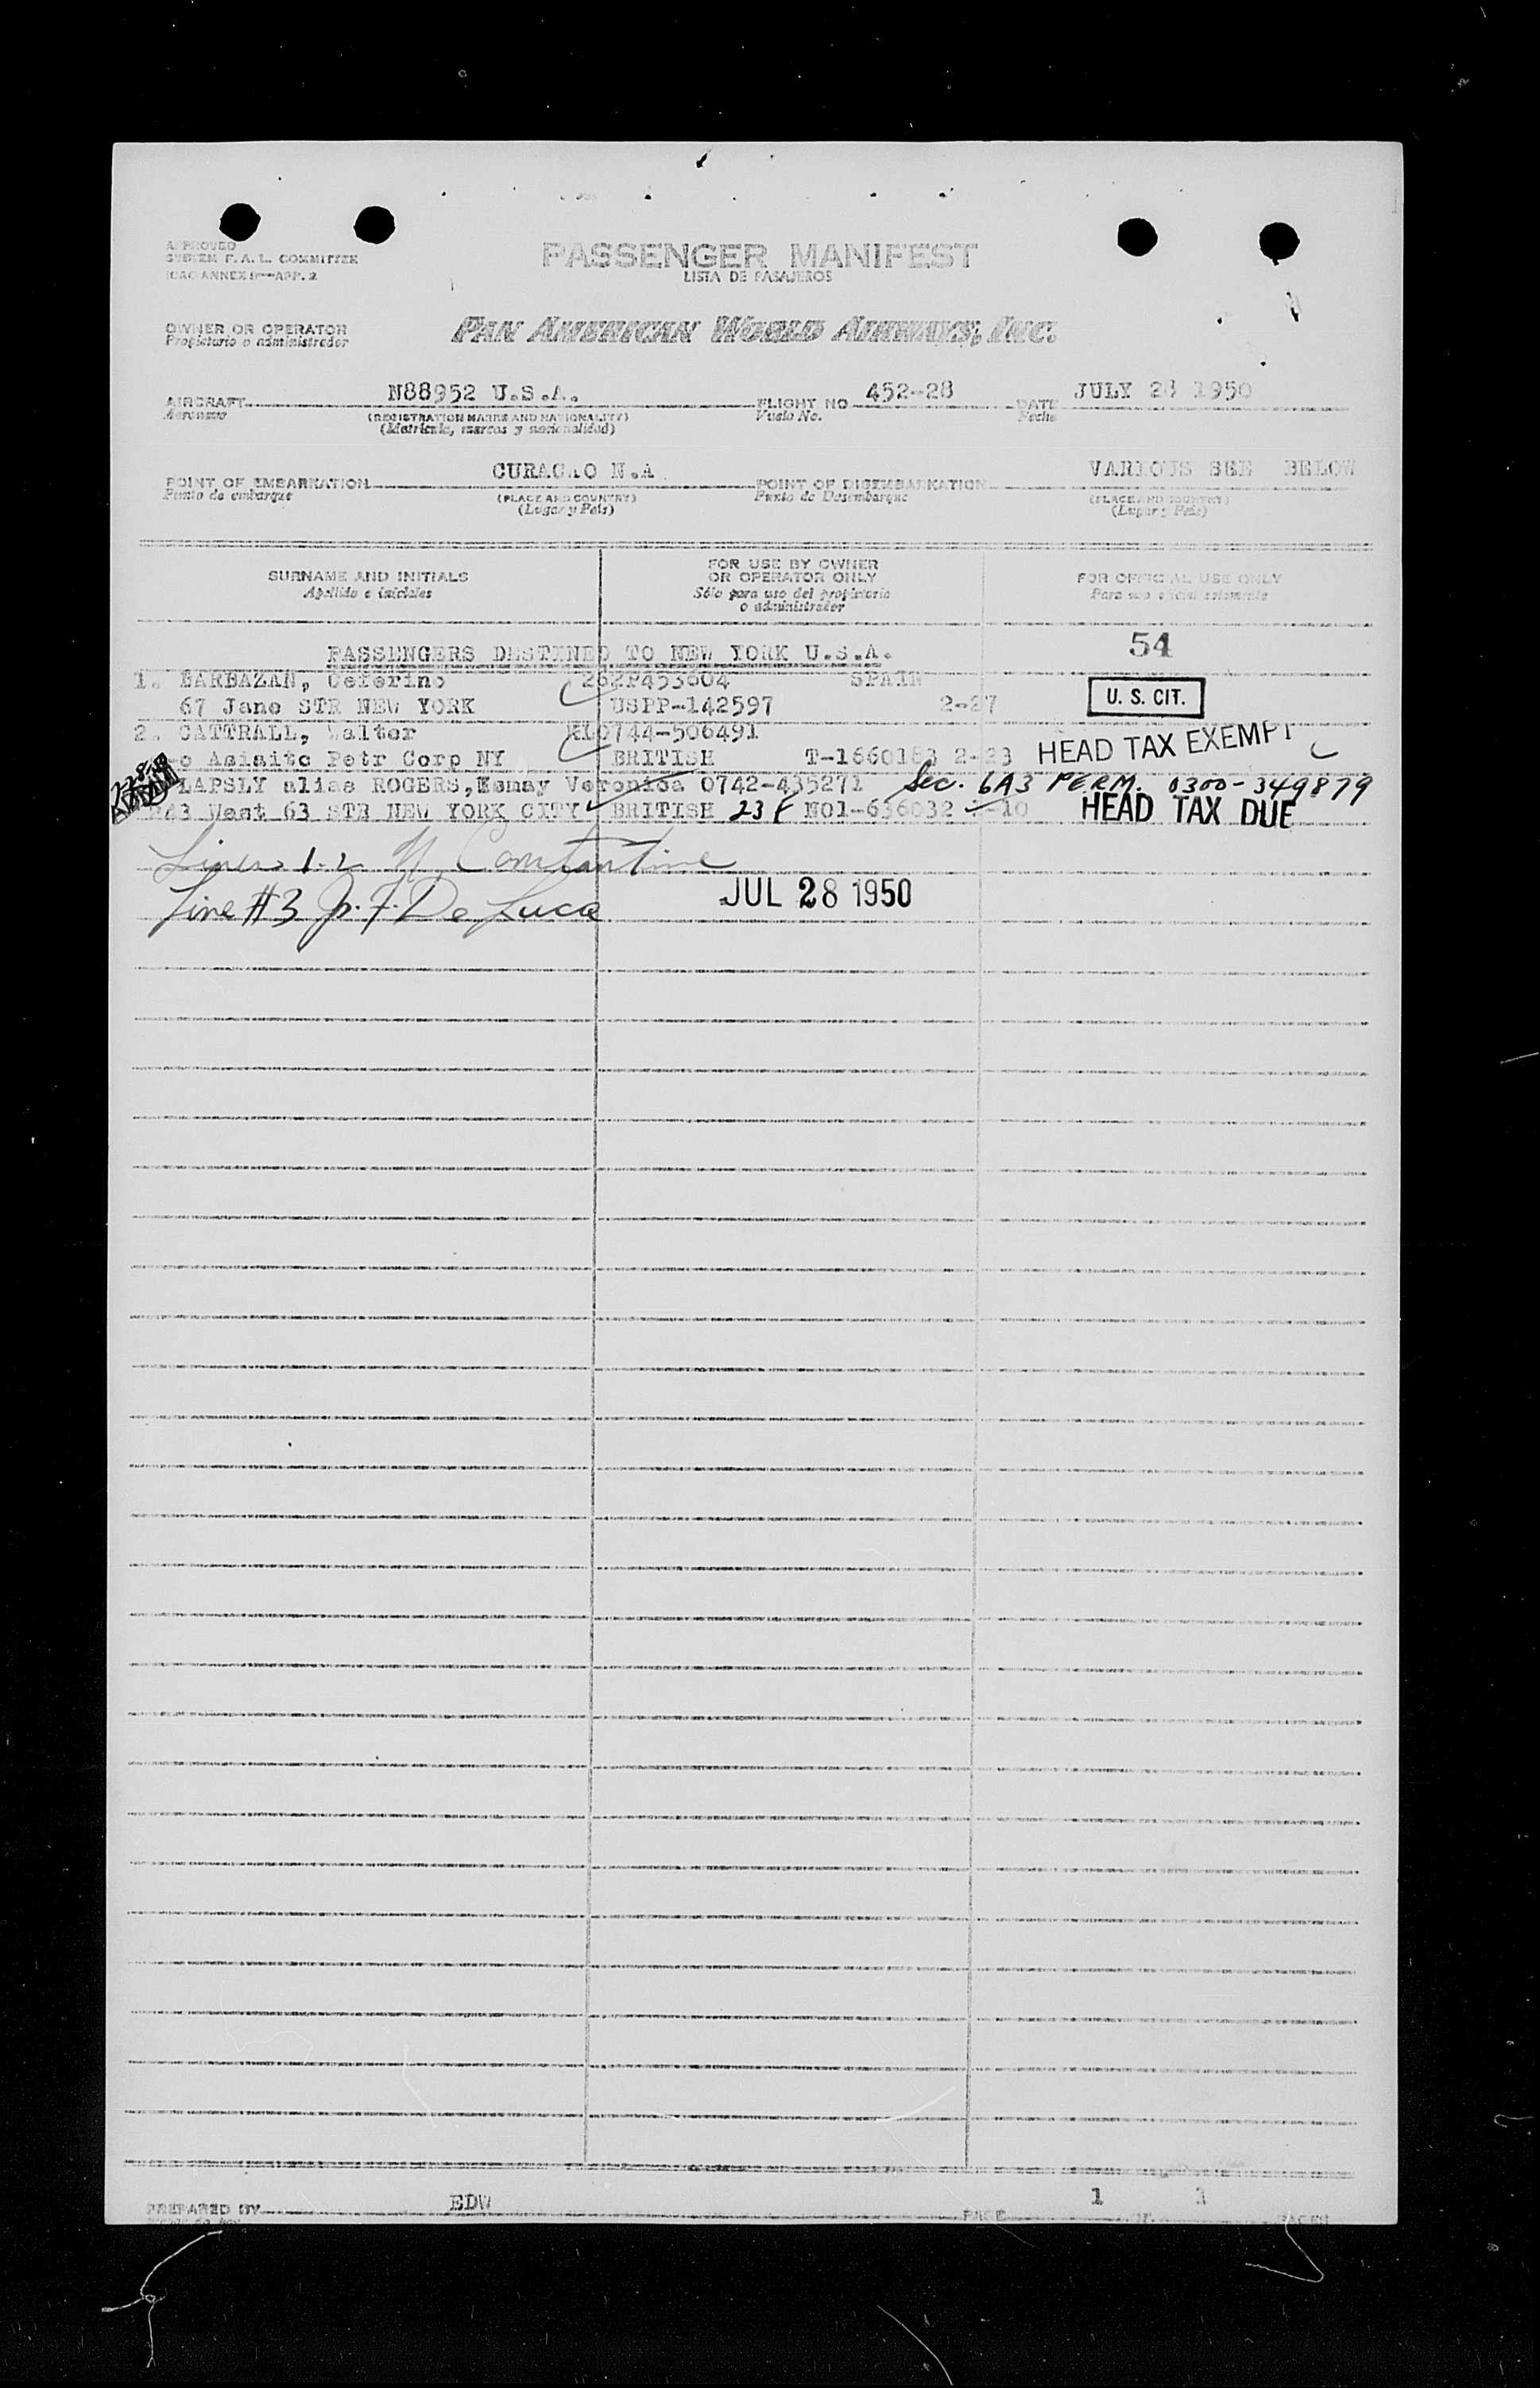 APPROVED
SYSTEM F. A. L. COMMITTEE
ICAO ANNEX 9—APP. 2
PASSENGER MANIFEST
LISTA DE PASAJEROS
OWNER OR OPERATOR
Propietario o administrador
PAN AMERICAN WORLD AIRWAYS, INC.
AIRCRAFT N88952 U.S.A. FLIGHT NO 452-28 DATE JULY 28 1950
Aeronave (REGISTRATION MARKS AND NATIONALITY) Vuelo No. Fecha
(Matricula, marcas y nacionalidad)
POINT OF EMBARKATION CURACAO N.A POINT OF DISEMBARKATION VARIOUS SEE BELOW
Punto de embarque (PLACE AND COUNTRY) Punto de Desembarque (PLACE AND COUNTRY)
(Lugar y País) (Lugar y País)
SURNAME AND INITIALS
Apellido e iniciales
FOR USE BY OWNER
OR OPERATOR ONLY
Sólo para uso del propietario
o administrador
FOR OFFICIAL USE ONLY
Para uso oficial solamente
PASSENGERS DESTINED TO NEW YORK U.S.A. 54
1. BARBAZAN, Ceferino 262P453604 SPAIN
67 Jane STR NEW YORK USPP-142597 2-27 U. S. CIT.
2. CATTRALL, Walter 0744-506491
Petr Corp NY BRITISH T-1660183 2-23 HEAD TAX EXEMPT
LAPSLY alias ROGERS, Veronica 0742-435271 Sec. 6A3 PERM. 0300-349879
243 West 63 STR NEW YORK CITY BRITISH 23 F NO1-636032 -10 HEAD TAX DUE
Lines 1-2 Constantine
Line #3 J. F. De Luca JUL 28 1950
PREPARED BY EDW PAGE 1 OF 1 PAGES